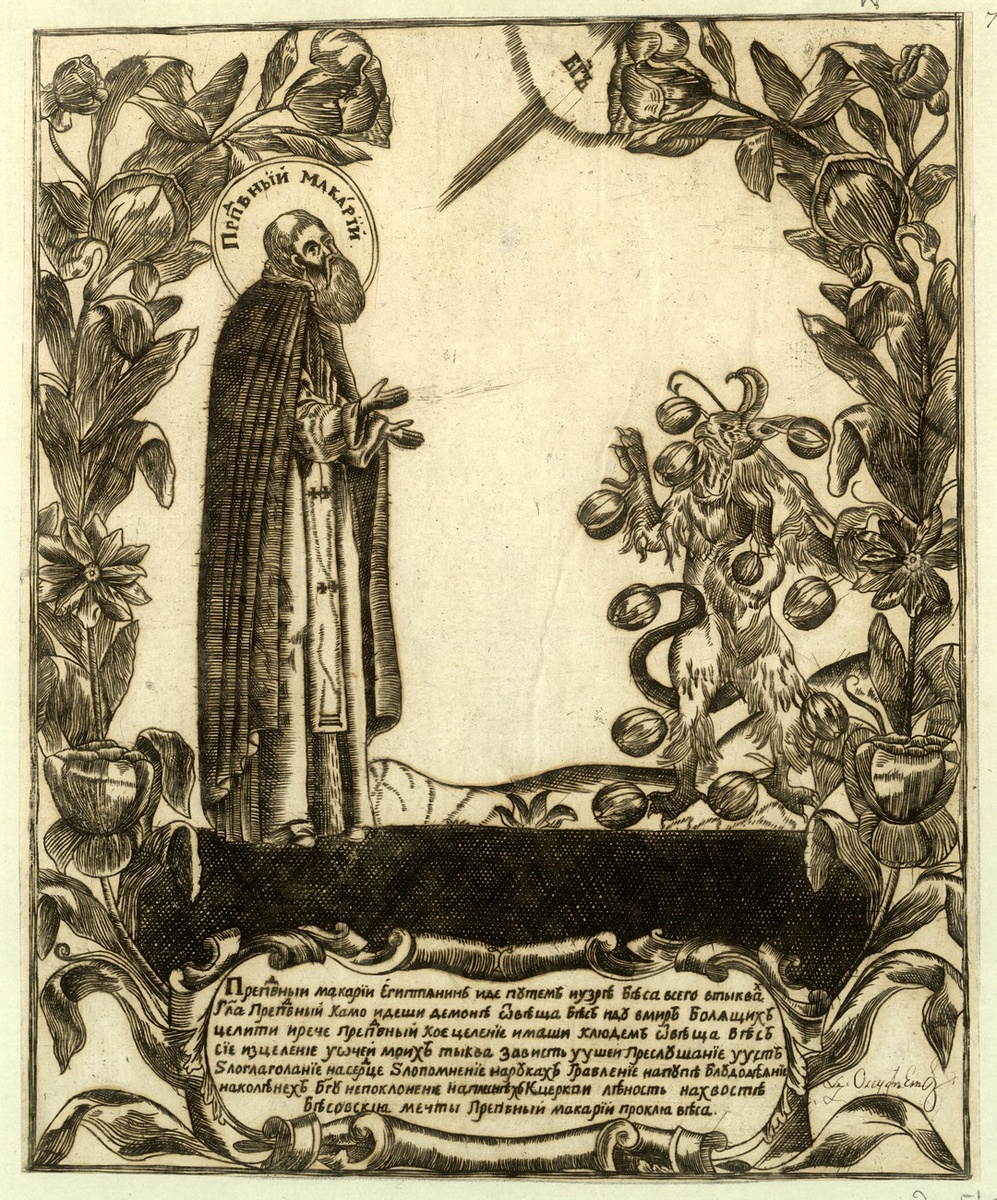 БГ҃Ъ
ПРПД҃БНЫЙ МАКАРІЙ.
Препⷣбныи макаріи Египтянинъ иде пꙋтемъ иꙋзрѣ бѣса всего втыкваⷯ
Гл҃а Препⷣбныи камо идеши демоне ѿвѣща бѣсъ идꙋ вмиръ болящихъ
целити ирече препⷣбный кое целеніе имаши клюдемъ ѿвѣща бѣсъ
сїе изцеленіе уѡчей моихъ тыква зависть уушей преслꙋшаніе уустъ
Ѕлоглаголаніе насерⷣце Ѕлопомненіе нарꙋкахъ грабленіе напꙋпѣ блꙋдодѣяніе
наколѣнехъ Бг҃ꙋ непоклоненіе кцеркви лѣность нахвостѣ
бѣсовския мечты Препⷣбный макаріи прокля бѣса.